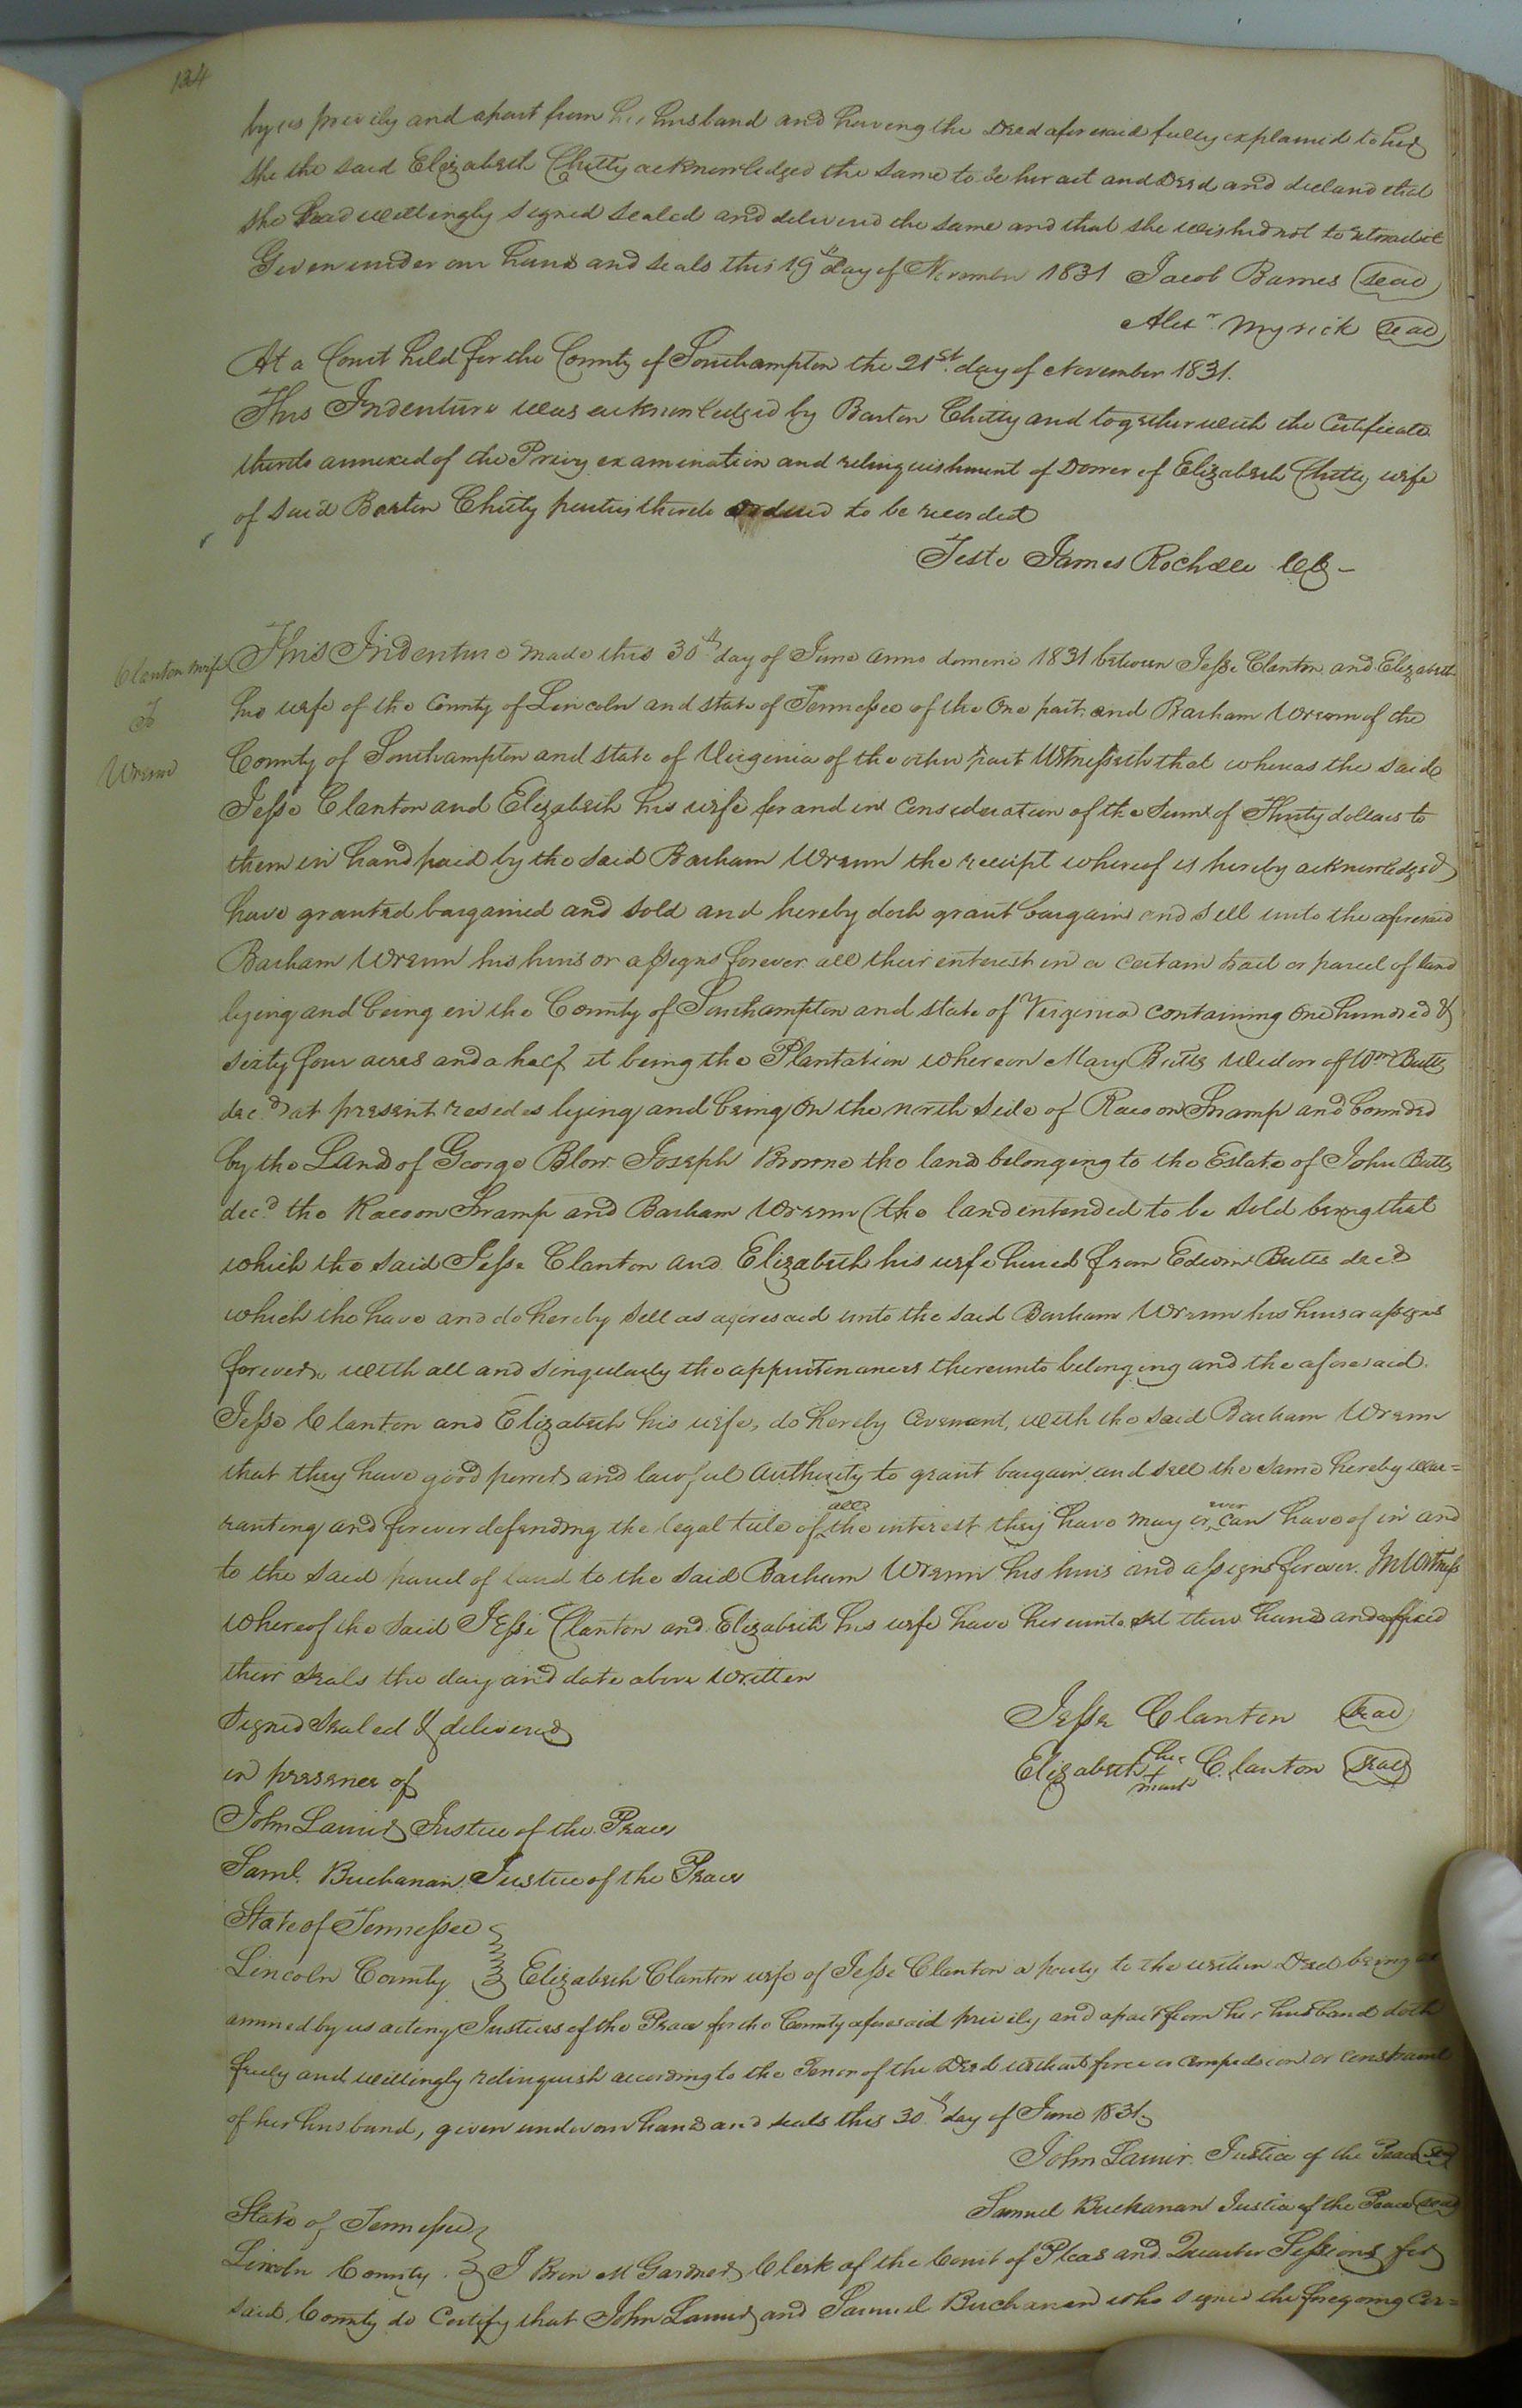 134
by us privily and apart from her husband and having the Deed aforesaid fully explained to her
she the said Elizabeth Chitty acknowledged the same to be her act and Deed and declared that
she had willingly signed sealed and delivered the same and that she wished not to retract it
Given under our hands and seals this 19th day of November 1831 Jacob Barnes seal
Alexr. Myrick seal
At a Court held for the County of Southampton the 21st. day of November 1831.
This Indenture was acknowledged by Barton Chitty and together with the Certificate
thereto annexed of the Privy examination and relinquishment of Dower of Elizabeth Chitty wife
of said Barton Chitty parties thereto ordered to be recorded
Teste James Rochelle
Clanton & wife
To
Wrenn
This Indenture made this 30th day of June anno domini 1831 between Jesse Clanton and Elizabeth
his wife of the County of Lincoln and state of Tennessee of the One part and Barham Wrenn of the
County of Southampton and state of Virginia of the other part Witnesseth that whereas the said
Jesse Clanton and Elizabeth his wife for and in Consideration of the Sum of Thirty dollars to
them in hand paid by the said Barham Wrenn the receipt whereof is hereby acknowledged
have granted bargained and sold and hereby doth grant bargain and sell unto the aforesaid
Barham Wrenn his heirs or assigns forever all their interest in a certain tract or parcel of land
lying and being in the County of Southampton and state of Virginia containing One hundred &
sixty four acres and a half it being the Plantation whereon Mary Butts Widow of Wm Butts
decd. at present resides lying and being on the north side of Racoon Swamp and bounded
by the Land of George Blow Joseph Browne the land belonging to the Estate of John Butts
decd. the Racoon Swamp and Barham Wrenn (the land intended to be sold being that
which the said Jesse Clanton and Elizabeth his wife heired from Edwin Butts decd
which the have and do hereby sell as aforesaid unto the said Barham Wrenn his heirs or assigns
forever, with all and singularly the appurtenances thereunto belonging and the aforesaid
Jesse Clanton and Elizabeth his wife, do hereby Covenant, with the said Barham Wrenn
that they have good power and lawful Authority to grant bargain and sell the same hereby war=
ranting and forever defending the legal title of all the interest they have may or ever can have of in and
to the said parcel of land to the said Barham Wrenn his heirs and assigns forever. In Witness
whereof the said Jesse Clanton and Elizabeth his wife have hereunto set their hands and affixed
their seals the day and date above Written
Signed Sealed & delivered
in presence of
Jesse Clanton seal
Elizabeth her + mark Clanton seal
John Lanier Justice of the Peace
Saml. Buchanan Justice of the Peace
State of Tennessee
Lincoln County Elizabeth Clanton wife of Jesse Clanton a party to the within Deed being ex
amined by us acting Justices of the Peace for the County aforesaid privily and apart from her husband doth
freely and willingly relinquish according to the Tenor of the Deed without force or compulsion or constraint
of her husband, given under our hands and seals this 30th day of June 1831.
John Lanier. Justice of the Peace seal
Samuel Buchanan Justice of the Peace seal
State of Tennessee
Lincoln County. I Brice M Garner Clerk of the Court of Pleas and Quarter Sessions for
said County do Certify that John Lanier and Samuel Buchanan who signed the foregoing Cer=